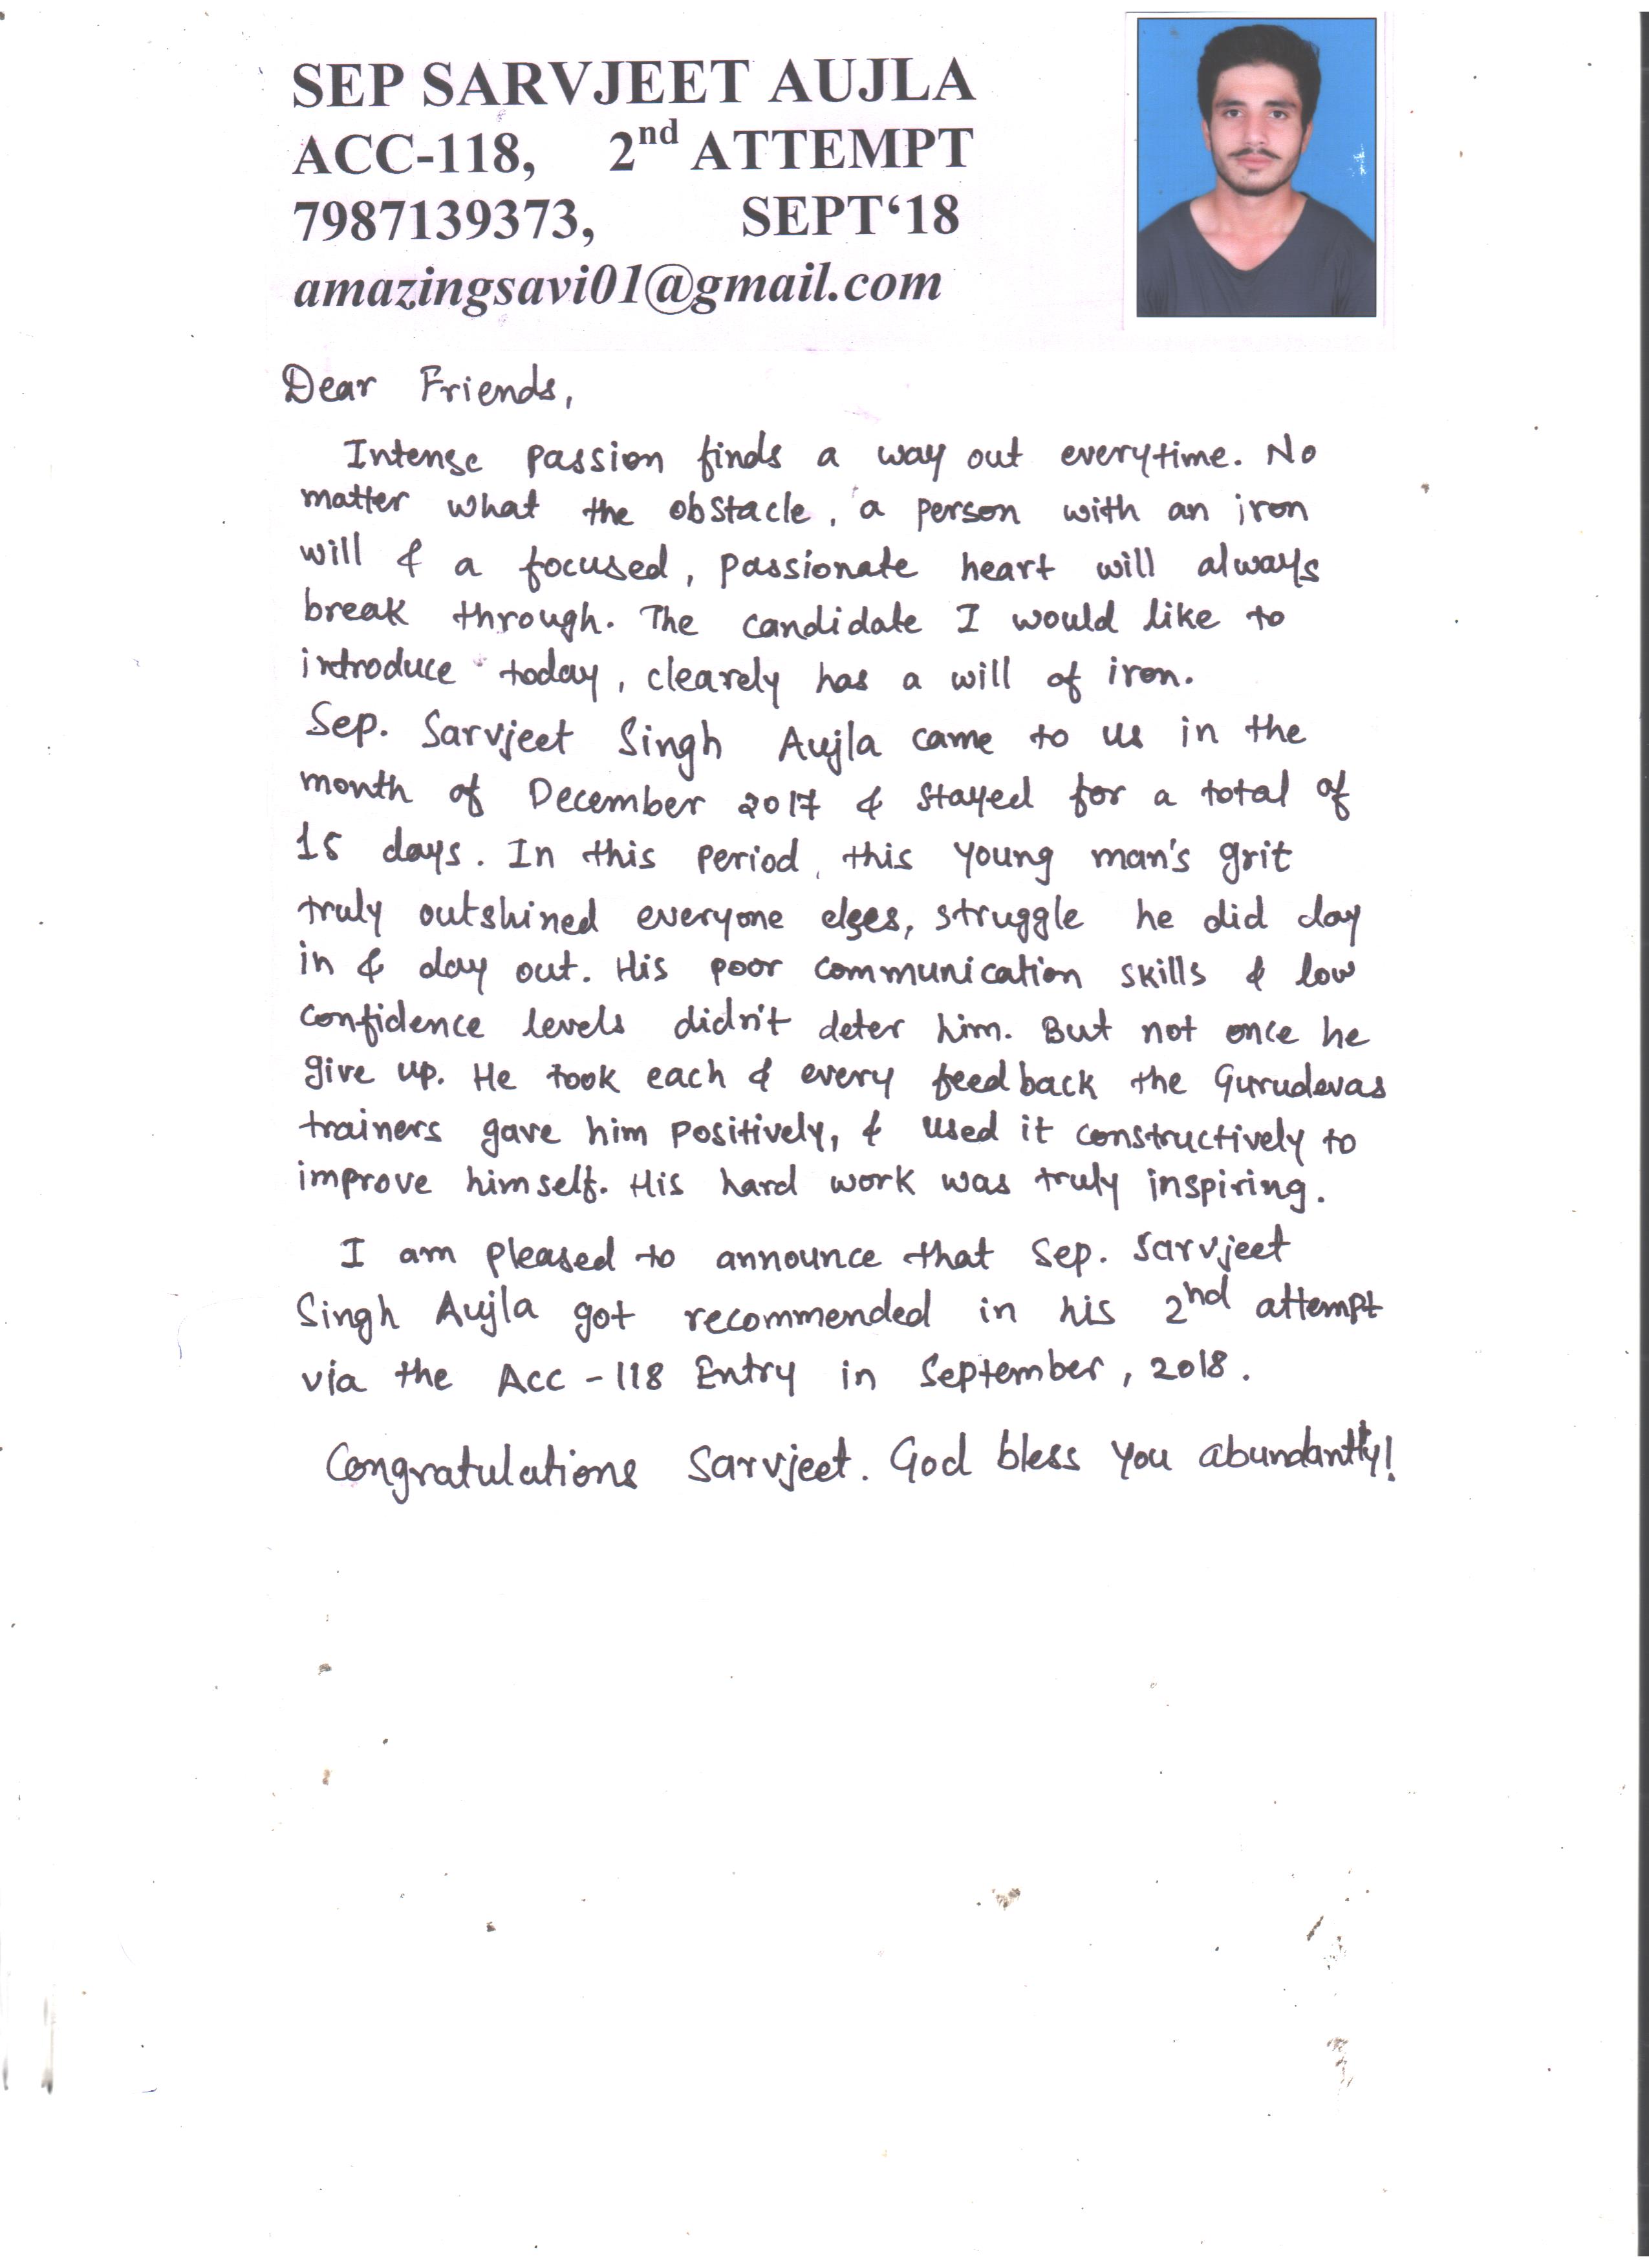 SEP SARVJEET AUJLA
ACC-118, 2nd ATTEMPT
7987139373, SEPT‘18
amazingsavi01@gmail.com
Dear Friends,
Intense passion finds a way out everytime. No
matter what the obstacle, a person with an iron
will & a focused, passionate heart will always
break through. The candidate I would like to
introduce today, clearely has a will of iron.
Sep. Sarvjeet Singh Aujla came to us in the
month of December 2017 & stayed for a total of
15 days. In this period, this young man's grit
truly outshined everyone elses, struggle he did day
in & day out. His poor communication skills & low
confidence levels didn't deter him. But not once he
give up. He took each & every feedback the Gurudevas
trainers gave him positively, & used it constructively to
improve himself. His hard work was truly inspiring.
I am pleased to announce that Sep. Sarvjeet
Singh Aujla got recommended in his 2nd attempt
via the Acc - 118 Entry in September, 2018.
Congratulations Sarvjeet. God bless you abundantly!